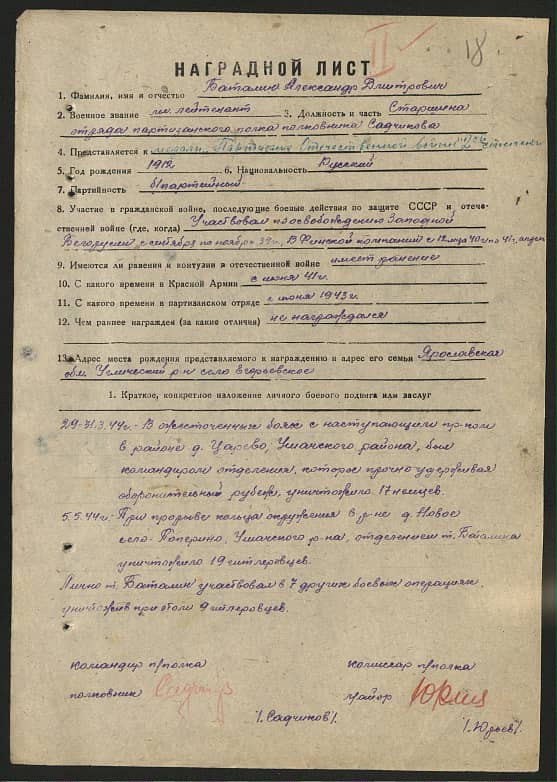 II
18
НАГРАДНОЙ ЛИСТ
1. Фамилия, имя и отчество Баталин Александр Дмитрович
2. Военное звание мл. лейтенант 3. Должность и часть Старшина
отряда партизанского полка полковника Садчикова
4. Представляется к медали "Партизану Отечественной войны" 2ой степени
5. Год рождения 1912 6. Национальность Русский
7. Партийность б/партейный
8. Участие в гражданской войне, последующие боевые действия по защите СССР и отече-
ственней войне (где, когда) Участвовал по освобождению Западной
Белорусии с сентября по ноябрь 39 г., В Финской компании с 40 г. по 41 г.
9. Имеются ли ранения и контузии в отечественной войне имеет ранение
10. С какого времени в Красной Армии с июня 41 г.
11. С какого времени в партизанском отряде с июня 1943 г.
12. Чем раннее награжден (за какие отличия) не награждался
13. Адрес места рождения представляемого к награждению и адрес его семьи Ярославская
обл. Угличский р-н село Егорьевское
1. Краткое, конкретное изложение личного боевого подвига или заслуг
29-31.3.44 г. - В ожесточенных боях с наступающим пр-ком
в районе д. Царево, Ушачского района, был
командиром отделения, которое прочно удерживая
оборонительный рубеж, уничтожило 17 немцев.
5.5.44 г. При прорыве кольца окружения в р-не д. Новое
село-Паперино, Ушачского р-на, отделением т. Баталина
уничтожило 19 гитлеровцев.
Лично т. Баталин участвовал в 7 других боевых операциях,
уничтожив при этом 9 гитлеровцев.
командир п/полка комиссар п/полка
полковник майор
/. Садчиков/. /. Юрьев/.